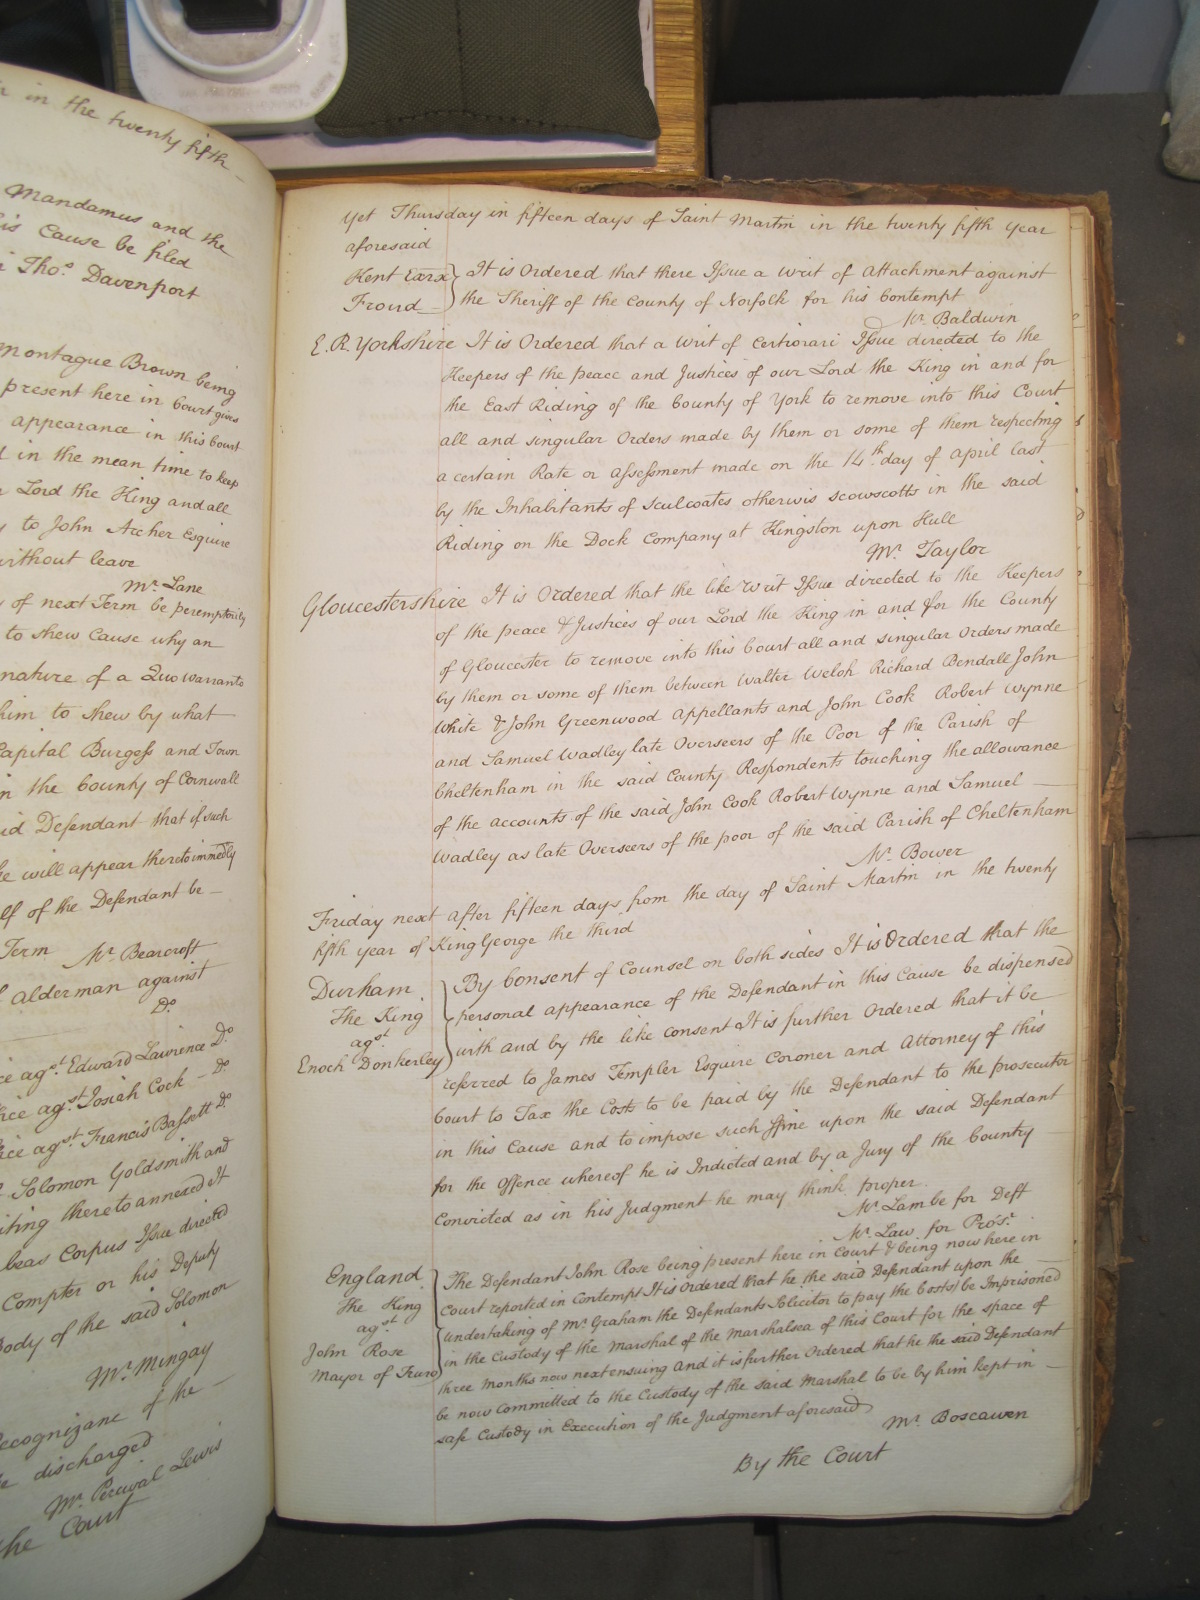 in the twenty fifth
Mandamus and the
is Cause be filed
Thos. Davenport
Montague Brown being
present here in Court gives
appearance in this Court
in the mean time to keep
Lord the King and all
to John Archer Esquire
without leave
Mr. Lane
of next Term be peremptorily
to shew Cause why an
nature of a Quo Warranto
him to shew by what
Capital Burgess and Town
in the County of Cornwall
said Defendant that if such
he will appear thereto immedly
lf of the Defendant be
Term Mr. Bearcroft
Alderman against
Do.
agst. Edward Lawrence Do.
agst. Josiah Cock Do.
agst. Francis Bassett Do.
Solomon Goldsmith and
iting thereto annexed It
beas Corpus Issue directed
Compter or his Deputy
Body of the said Solomon
Mr. Mingay
Recognizane of the
discharged
Mr. Percival Lewis
the Court
Yet Thursday in fifteen days of Saint Martin in the twenty fifth year
aforesaid
Kent Exrx
Froud
It is Ordered that there Issue a Writ of Attachment against
the Sheriff of the County of Norfolk for his Contempt
Mr. Baldwin
E. R. Yorkshire It is Ordered that a Writ of Certiorari Issue directed to the
Keepers of the peace and Justices of our Lord the King in and for
the East Riding of the County of York to remove into this Court
all and singular Orders made by them or some of them respecting
a certain Rate or Assessment made on the 14th. day of April last
by the Inhabitants of Sculcoates otherwis Scowscotts in the said
Riding on the Dock Company at Kingston upon Hull
Mr. Taylor
Gloucestershire It is Ordered that the like Writ Issue directed to the Keepers
of the peace & Justices of our Lord the King in and for the County
of Gloucester to remove into this Court all and singular Orders made
by them or some of them between Walter Welch Richard Bendall John
White & John Greenwood Appellants and John Cook Robert Wynne
and Samuel Wadley late Overseers of the Poor of the Parish of
Cheltenham in the said County Respondents touching the allowance
of the accounts of the said John Cook Robert Wynne and Samuel
Wadley as late Overseers of the poor of the said Parish of Cheltenham
Mr. Bower
Friday next after fifteen days from the day of Saint Martin in the twenty
fifth year of King George the third
Durham
The King
agst.
Enoch Donkerley
By Consent of Counsel on both sides It is Ordered that the
personal appearance of the Defendant in this Cause be dispensed
with and by the like consent It is further Ordered that it be
referred to James Templer Esquire Coroner and Attorney of this
Court to Tax the Costs to be paid by the Defendant to the prosecutor
in this Cause and to impose such ffine upon the said Defendant
for the Offence whereof he is Indicted and by a Jury of the Country
Convicted as in his Judgment he may think proper
Mr. Lambe for Deft
Mr. Law for Prosr.
England
The King
agst.
John Rose
Mayor of Truro
The Defendant John Rose being present here in Court & being now here in
Court reported in Contempt It is Ordered that he the said Defendant upon the
undertaking of Mr. Graham the Defendants Solicitor to pay the Costs be Imprisoned
in the Custody of the Marshal of the Marshalsea of this Court for the space of
three Months now next ensuing And it is further Ordered that he the said Defendant
be now Committed to the Custody of the said Marshal to be by him kept in
safe Custody in Execution of the Judgment aforesaid
Mr. Boscawen
By the Court